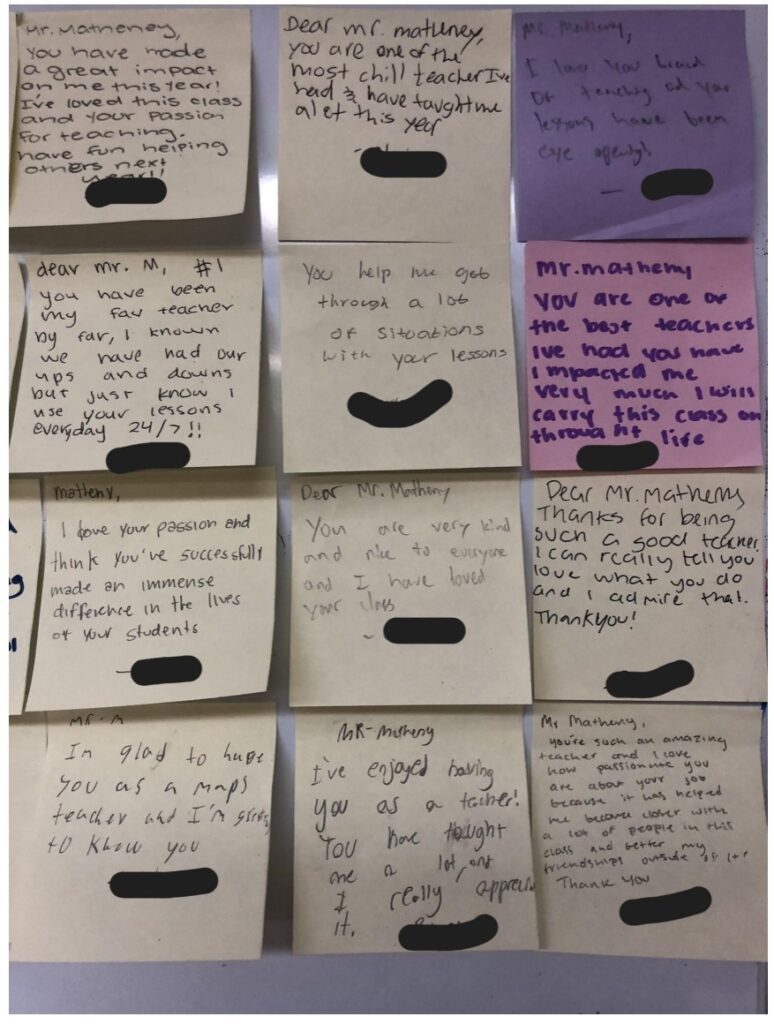 Mr. Matheney,
You have made
a great impact
on me this year!
I've loved this class
and your passion
for teaching.
have fun helping
others next
year!!
Dear mr. matheney,
you are one of the
most chill teacher I've
had & have taught me
a lot this year
Mr. Matheny,
I love you
of teaching and your
lessons have been
eye openly!
dear mr. M, #1
you have been
my fav teacher
by far, I known
we have had our
ups and downs
but just know I
use your lessons
everyday 24/7!!
You help me get
through a lot
of situations
with your lessons
Mr. matheny
You are one of
the best teachers
Ive had you have
impacted me
very much I will
carry this class on
throught life
matheny,
I love your passion and
think you've successfully
made an immense
difference in the lives
of your students
Dear Mr. Matheny
You are very kind
and nice to everyone
and I have loved
your class
Dear Mr. Matheny
Thanks for being
such a good teacher.
I can really tell you
love what you do
and I admire that.
Thankyou!
Mr. M
Im glad to have
you as a maps
teacher and I'm
to know you
MR-Matheny
I've enjoyed having
you as a teacher!
You have thought
me a lot, and
I really
it.
Mr Matheny,
you're such an amazing
teacher and I love
how passionate you
are about your job
because it has helped
me become closer with
a lot of people in this
class and better my
friendships outside of it
Thank you